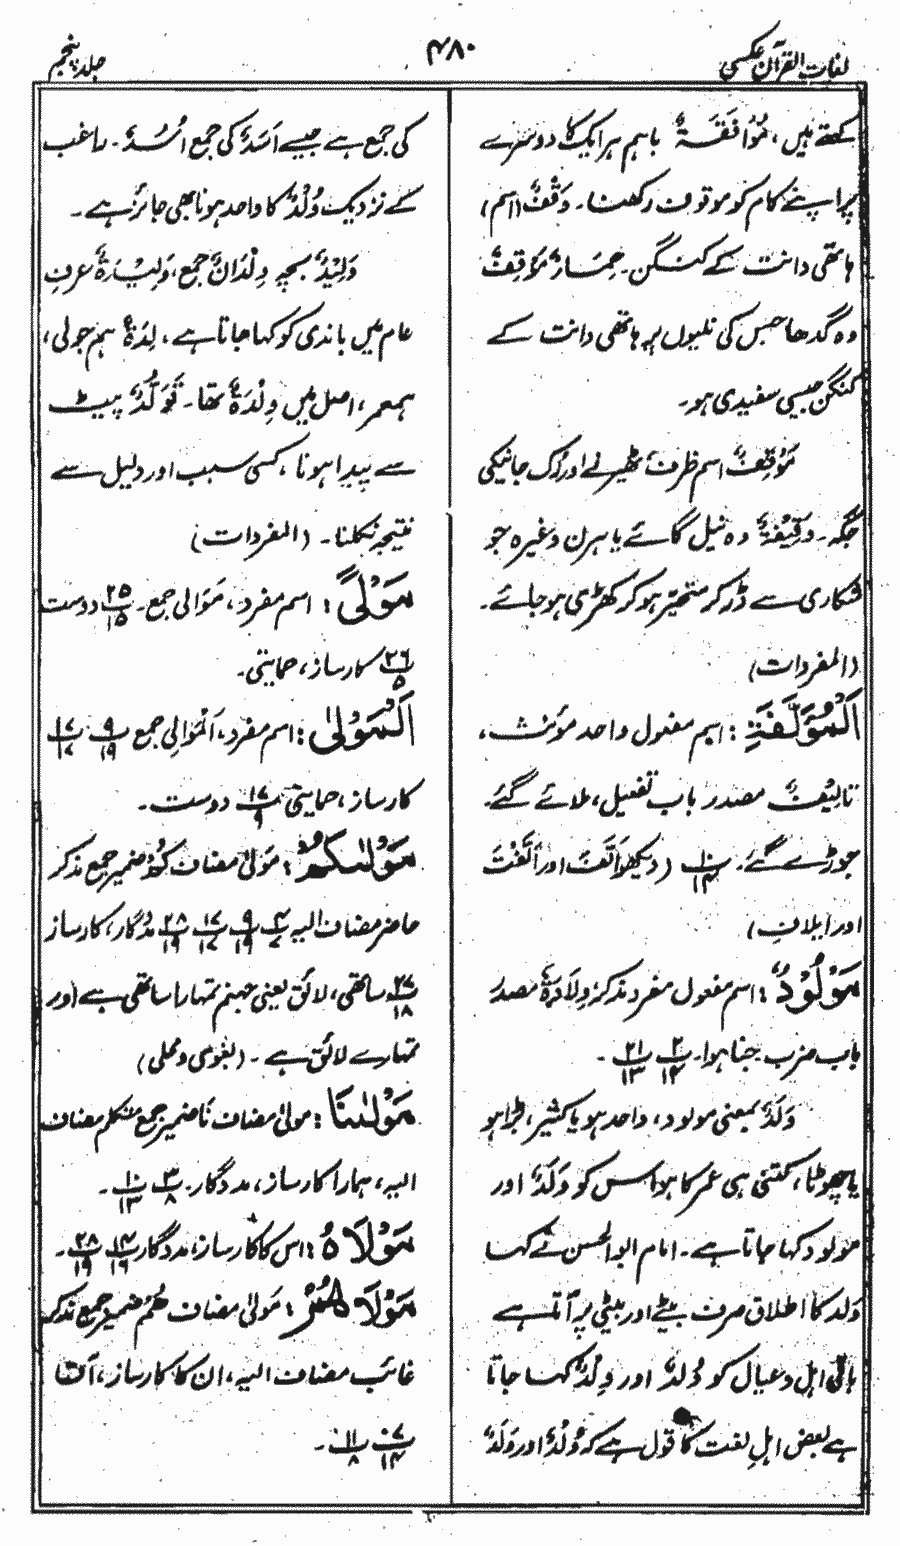 لغات القرآن عکسی
۴۸۰
جلد پنجم
کہتے ہیں، مُوَافَقَةٌ باہم ہر ایک کا دوسرے
پر اپنے کام کو موقوف رکھنا۔ وَقْفٌ (اسم)
ہاتھی دانت کے کنگن۔ حِمَارٌ مُوَقَّفٌ
وہ گدھا جس کی نلیوں پر ہاتھی دانت کے
کنگن جیسی سفیدی ہو۔
مَوْقِفٌ اسم ظرف ٹھیرنے اور رُک جانیکی
جگہ۔ وَقِیْفَةٌ وہ نیل گائے یا ہرن وغیرہ جو
شکاری سے ڈر کر متحیّر ہو کر کھڑی ہو جائے۔
(المفردات)
اَلْمُؤَلَّفَةِ : اسم مفعول واحد مؤنث،
تالِیْفٌ مصدر باب تفعیل، ملائے گئے
جوڑے گئے۔ ۱۰/۱۴ (دیکھو اَلَّفَ اور اَلَّفْتَ
اور ایلافِ)
مَوْلُوْدٌ : اسم مفعول مفرد مذکر وِلَادَةٌ مصدر
باب ضرب۔ جنا ہوا۔ ۲/۱۴ ۲۱/۱۳ ۔
وَلَدٌ بمعنی مولود، واحد ہو یا کثیر، بڑا ہو
یا چھوٹا، کتنی ہی عمر کا ہو اس کو وَلَدٌ اور
مولود کہا جاتا ہے۔ امام ابوالحسن نے کہا
وَلد کا اطلاق صرف بیٹے اور بیٹی پر آتا ہے
باقی اہل و عیال کو وُلْدٌ اور وِلْدٌ کہا جاتا
ہے بعض اہلِ لغت کا قول ہے کہ وُلْدٌ اور وَلَدٌ
کی جمع ہے جیسے اَسَدٌ کی جمع اُسُدٌ۔ راغب
کے نزدیک وُلْدٌ کا واحد ہونا بھی جائز ہے۔
وَلِیْدٌ بچہ وِلْدَانٌ جمع، وَلِیْدَةٌ عرفِ
عام میں باندی کو کہا جاتا ہے، لِدَةٌ ہم جولی،
ہمعمر، اصل میں وِلْدَةٌ تھا۔ تَوَلُّدٌ پیٹ
سے پیدا ہونا، کسی سبب اور دلیل سے
نتیجہ نکلنا۔ (المفردات)
مَوْلًی : اسم مفرد، مَوَالی جمع۔ ۲۵/۱۵ دوست
۲۶/۵ کارساز، حمایتی۔
اَلْمَوْلٰی : اسم مفرد، اَلْمَوَالِی جمع ۹/۱۹ ۔ ۱۷/۱۷
کارساز، حمایتی ۱۷/۹ دوست۔
مَوْلٰىكُمْ : مَوْلیٰ مضاف کُمْ ضمیر جمع مذکر
حاضر مضاف الیہ ۴/۷ ۹/۱۹ ۱۷/۱۷ ۲۸/۱۹ مددگار، کارساز
۲۷/۱۸ ساتھی، لائق یعنی جہنم تمہارا ساتھی ہے اور
تمہارے لائق ہے۔ (بغوی و محلی)
مَوْلٰىنَا : مولیٰ مضاف نَا ضمیر جمع متکلم مضاف
الیہ، ہمارا کارساز، مددگار۔ ۳/۸ ۱۰/۱۳ ۔
مَوْلَاهُ : اس کا کارساز، مددگار ۱۴/۱۶ ۲۸/۱۹ ۔
مَوْلَاهُمْ : مَولیٰ مضاف ھُمْ ضمیر جمع مذکر
غائب مضاف الیہ، ان کا کارساز، آقا
۷/۱۴ ۱۱/۸ ۔